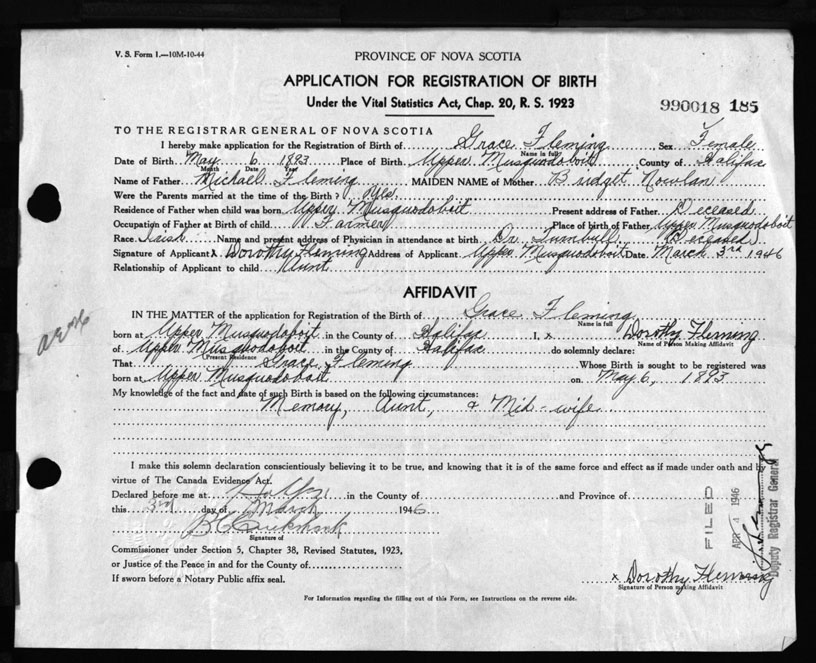 V. S. Form 1.—10M-10-44
PROVINCE OF NOVA SCOTIA
APPLICATION FOR REGISTRATION OF BIRTH
Under the Vital Statistics Act, Chap. 20, R. S. 1923
990018 185
TO THE REGISTRAR GENERAL OF NOVA SCOTIA
I hereby make application for the Registration of Birth of Grace Fleming Sex Female
Name in full
Date of Birth May 6 1893 Place of Birth Upper Musquodoboit County of Halifax
Month Date Year
Name of Father Michael Fleming MAIDEN NAME of Mother Bridget Nowlan
Were the Parents married at the time of the Birth? Yes
Residence of Father when child was born Upper Musquodoboit Present address of Father Deceased
Occupation of Father at Birth of child Farmer Place of birth of Father Upper Musquodoboit
Race Irish Name and present address of Physician in attendance at birth Dr. Turnbull (Deceased)
Signature of Applicant X Dorothy Fleming Address of Applicant Upper Musquodoboit Date March 3rd 1946
Relationship of Applicant to child Aunt
AFFIDAVIT
IN THE MATTER of the application for Registration of the Birth of Grace Fleming
Name in full
born at Upper Musquodoboit in the County of Halifax I, x Dorothy Fleming
Name of Person Making Affidavit
of Upper Musquodoboit in the County of Halifax do solemnly declare:
Present Residence
That Grace Fleming Whose Birth is sought to be registered was
born at Upper Musquodoboit on May 6, 1893
My knowledge of the fact and date of such Birth is based on the following circumstances:
Memory, Aunt, & Mid-wife
I make this solemn declaration conscientiously believing it to be true, and knowing that it is of the same force and effect as if made under oath and by
virtue of The Canada Evidence Act.
Declared before me at in the County of and Province of
this 3rd day of March 1946
Signature of
Commissioner under Section 5, Chapter 38, Revised Statutes, 1923,
or Justice of the Peace in and for the County of
If sworn before a Notary Public affix seal.
FILED
APR 4 1946
Deputy Registrar General
x Dorothy Fleming
Signature of Person making Affidavit
For Information regarding the filling out of this Form, see Instructions on the reverse side.